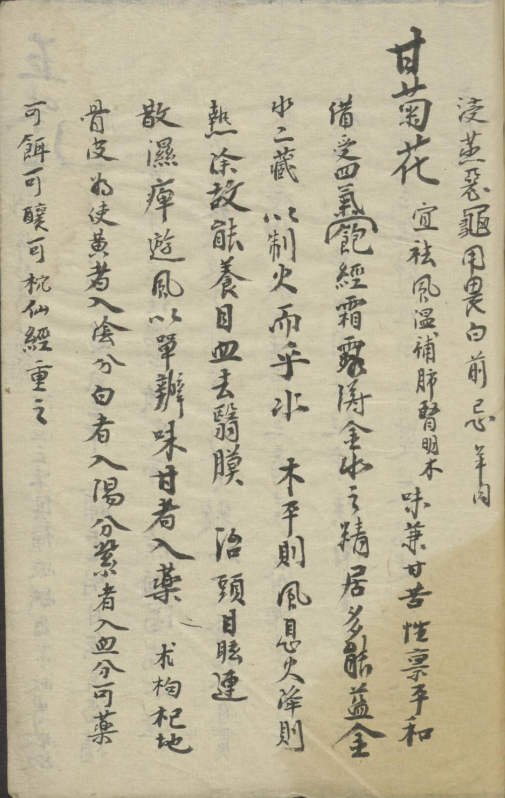 浸蒸 用畏白前忌羊肉
甘菊花 宜祛風溫補肺腎明木 味兼甘苦性稟平和
借受四氣飽經霜露得金水之精居多能益金
水二藏以制火而平木 木平則風息火降則
熱除故能養目血去翳膜 治頭目眩運
散濕痺遊風以單瓣味甘者入藥 朮枸杞地
骨皮為使黃者入陰分白者入陽分紫者入血分可藥
可餌可釀可枕仙經重之